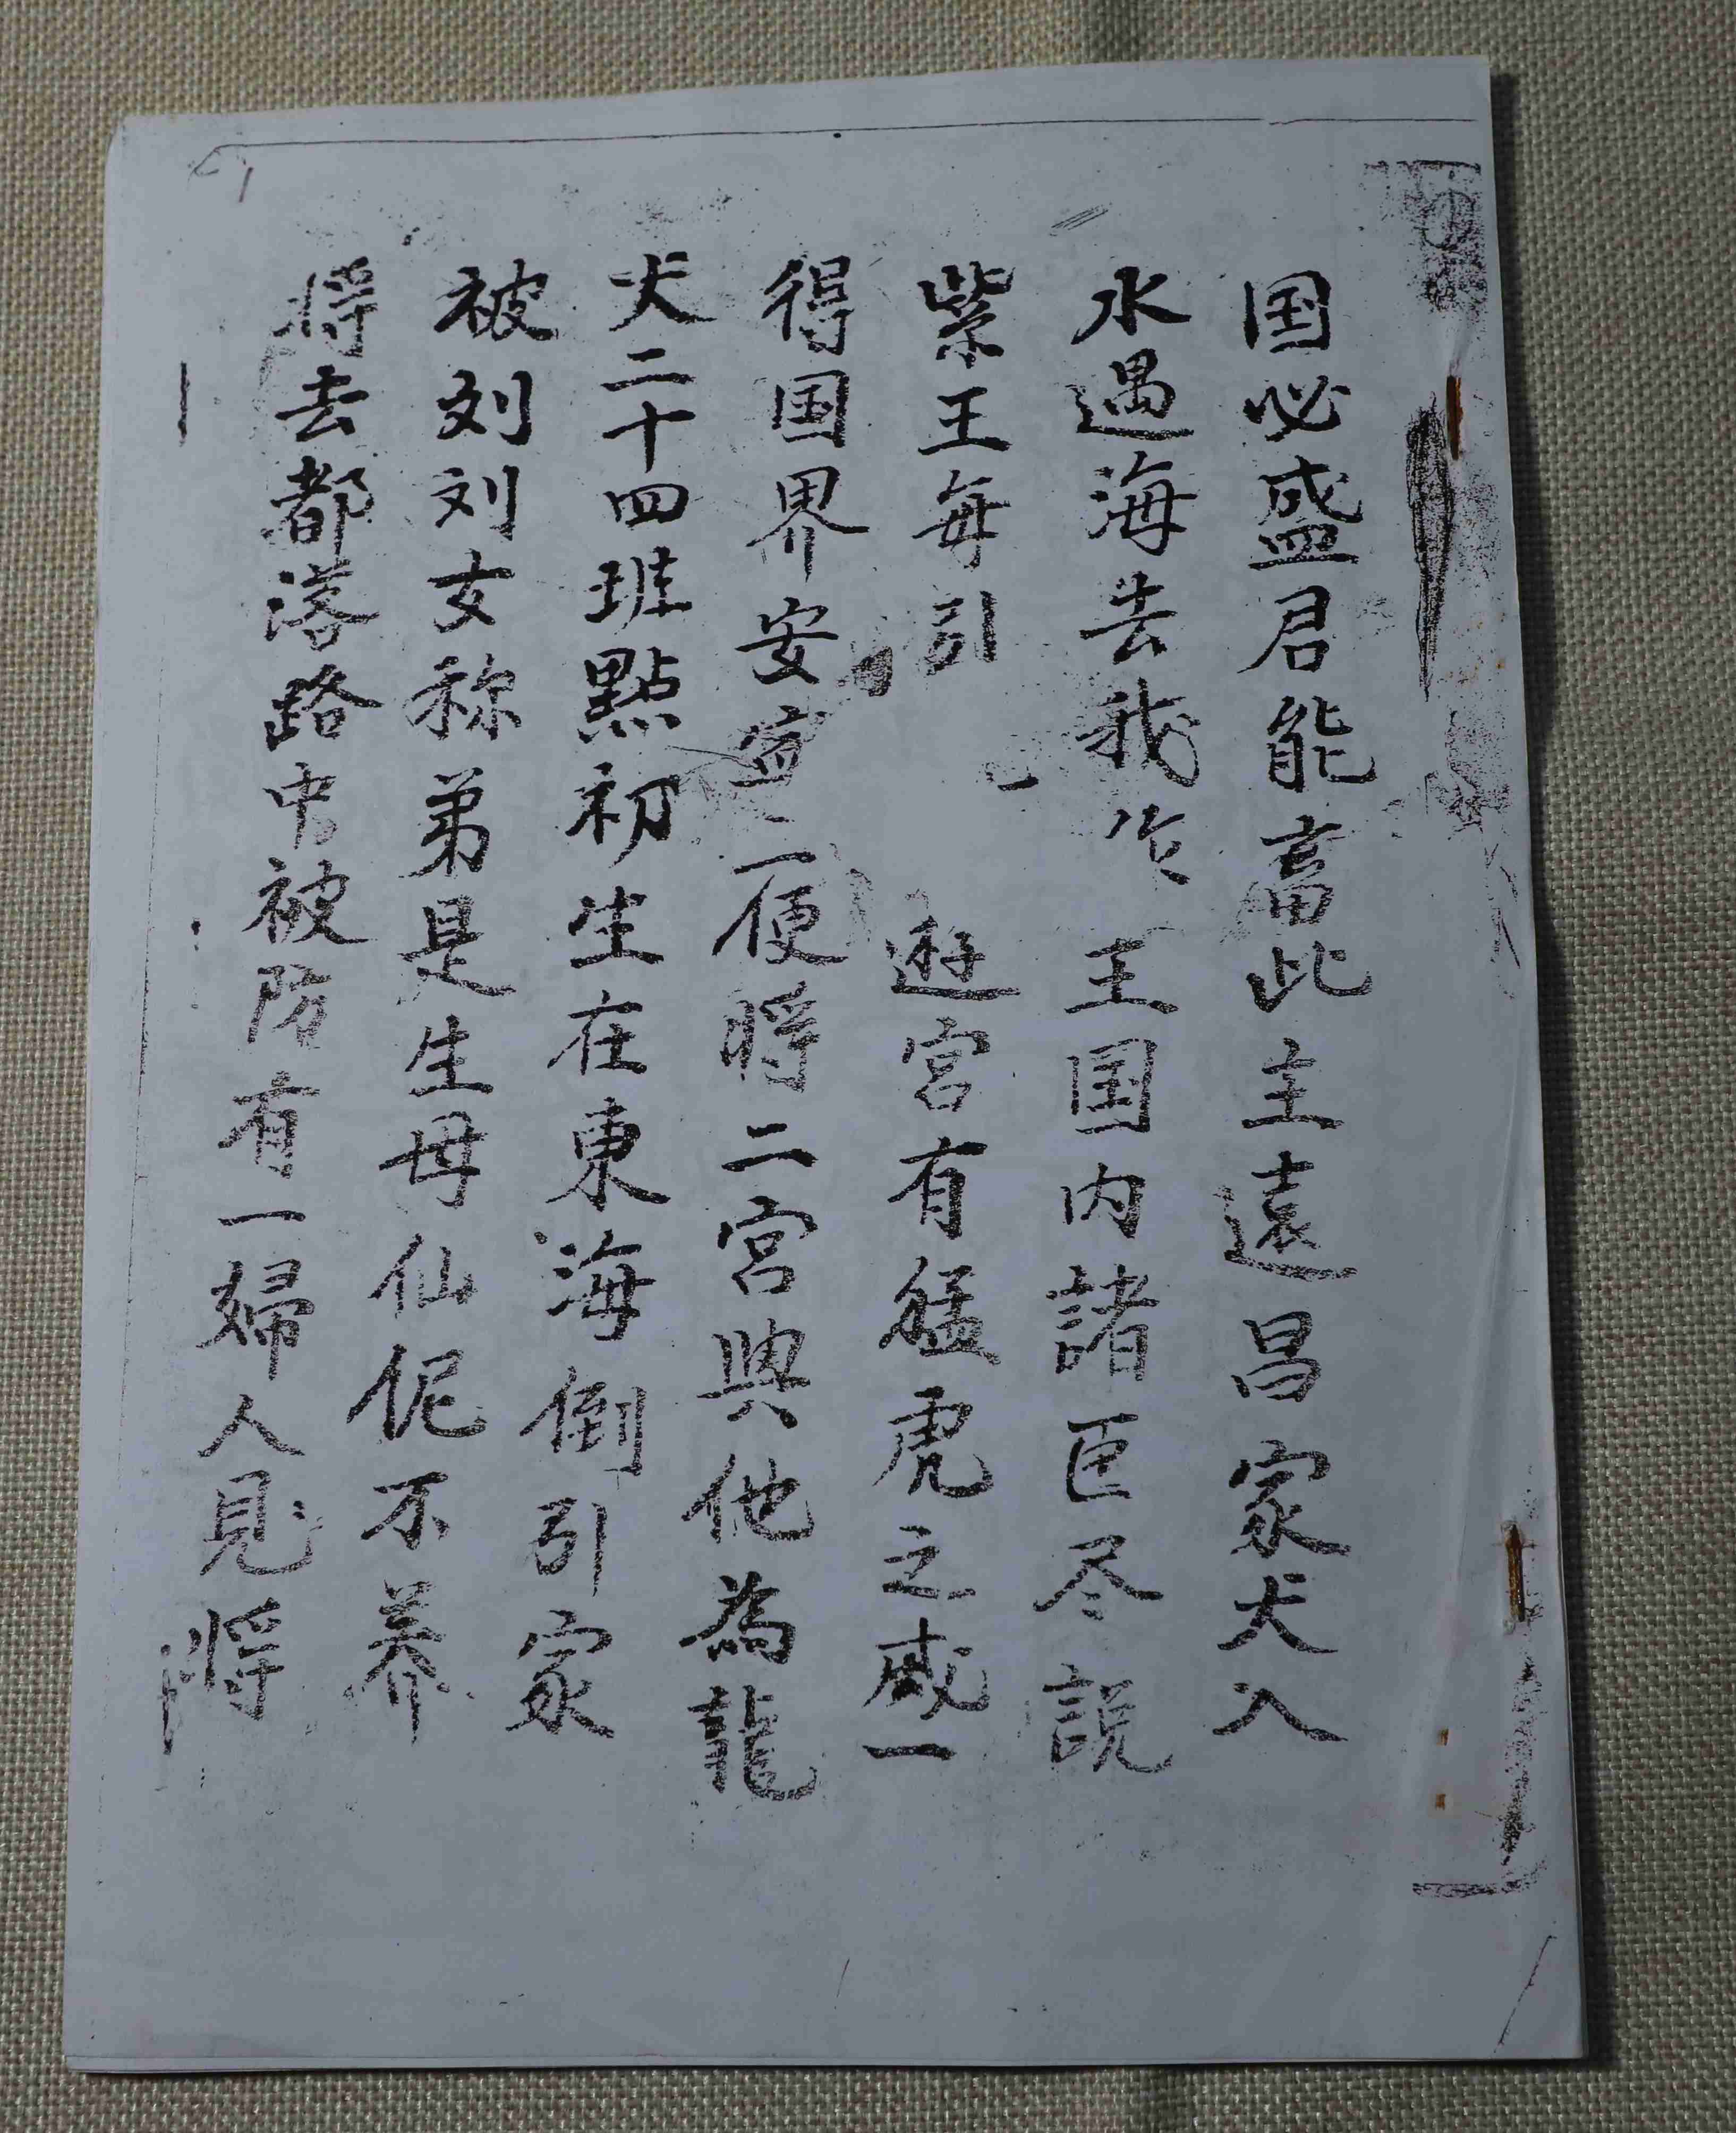 国必盛君能畜此主遠昌家犬入
水過海去我作 王国内諸臣尽說
紫王每引 遊宮有猛虎之威一
得国界安寧二便將二宮與他為龍
犬二十四班點初生在東海倒引家
被刘刘女称弟是生母仙伲不养
將去都落路中被防有一婦人見將